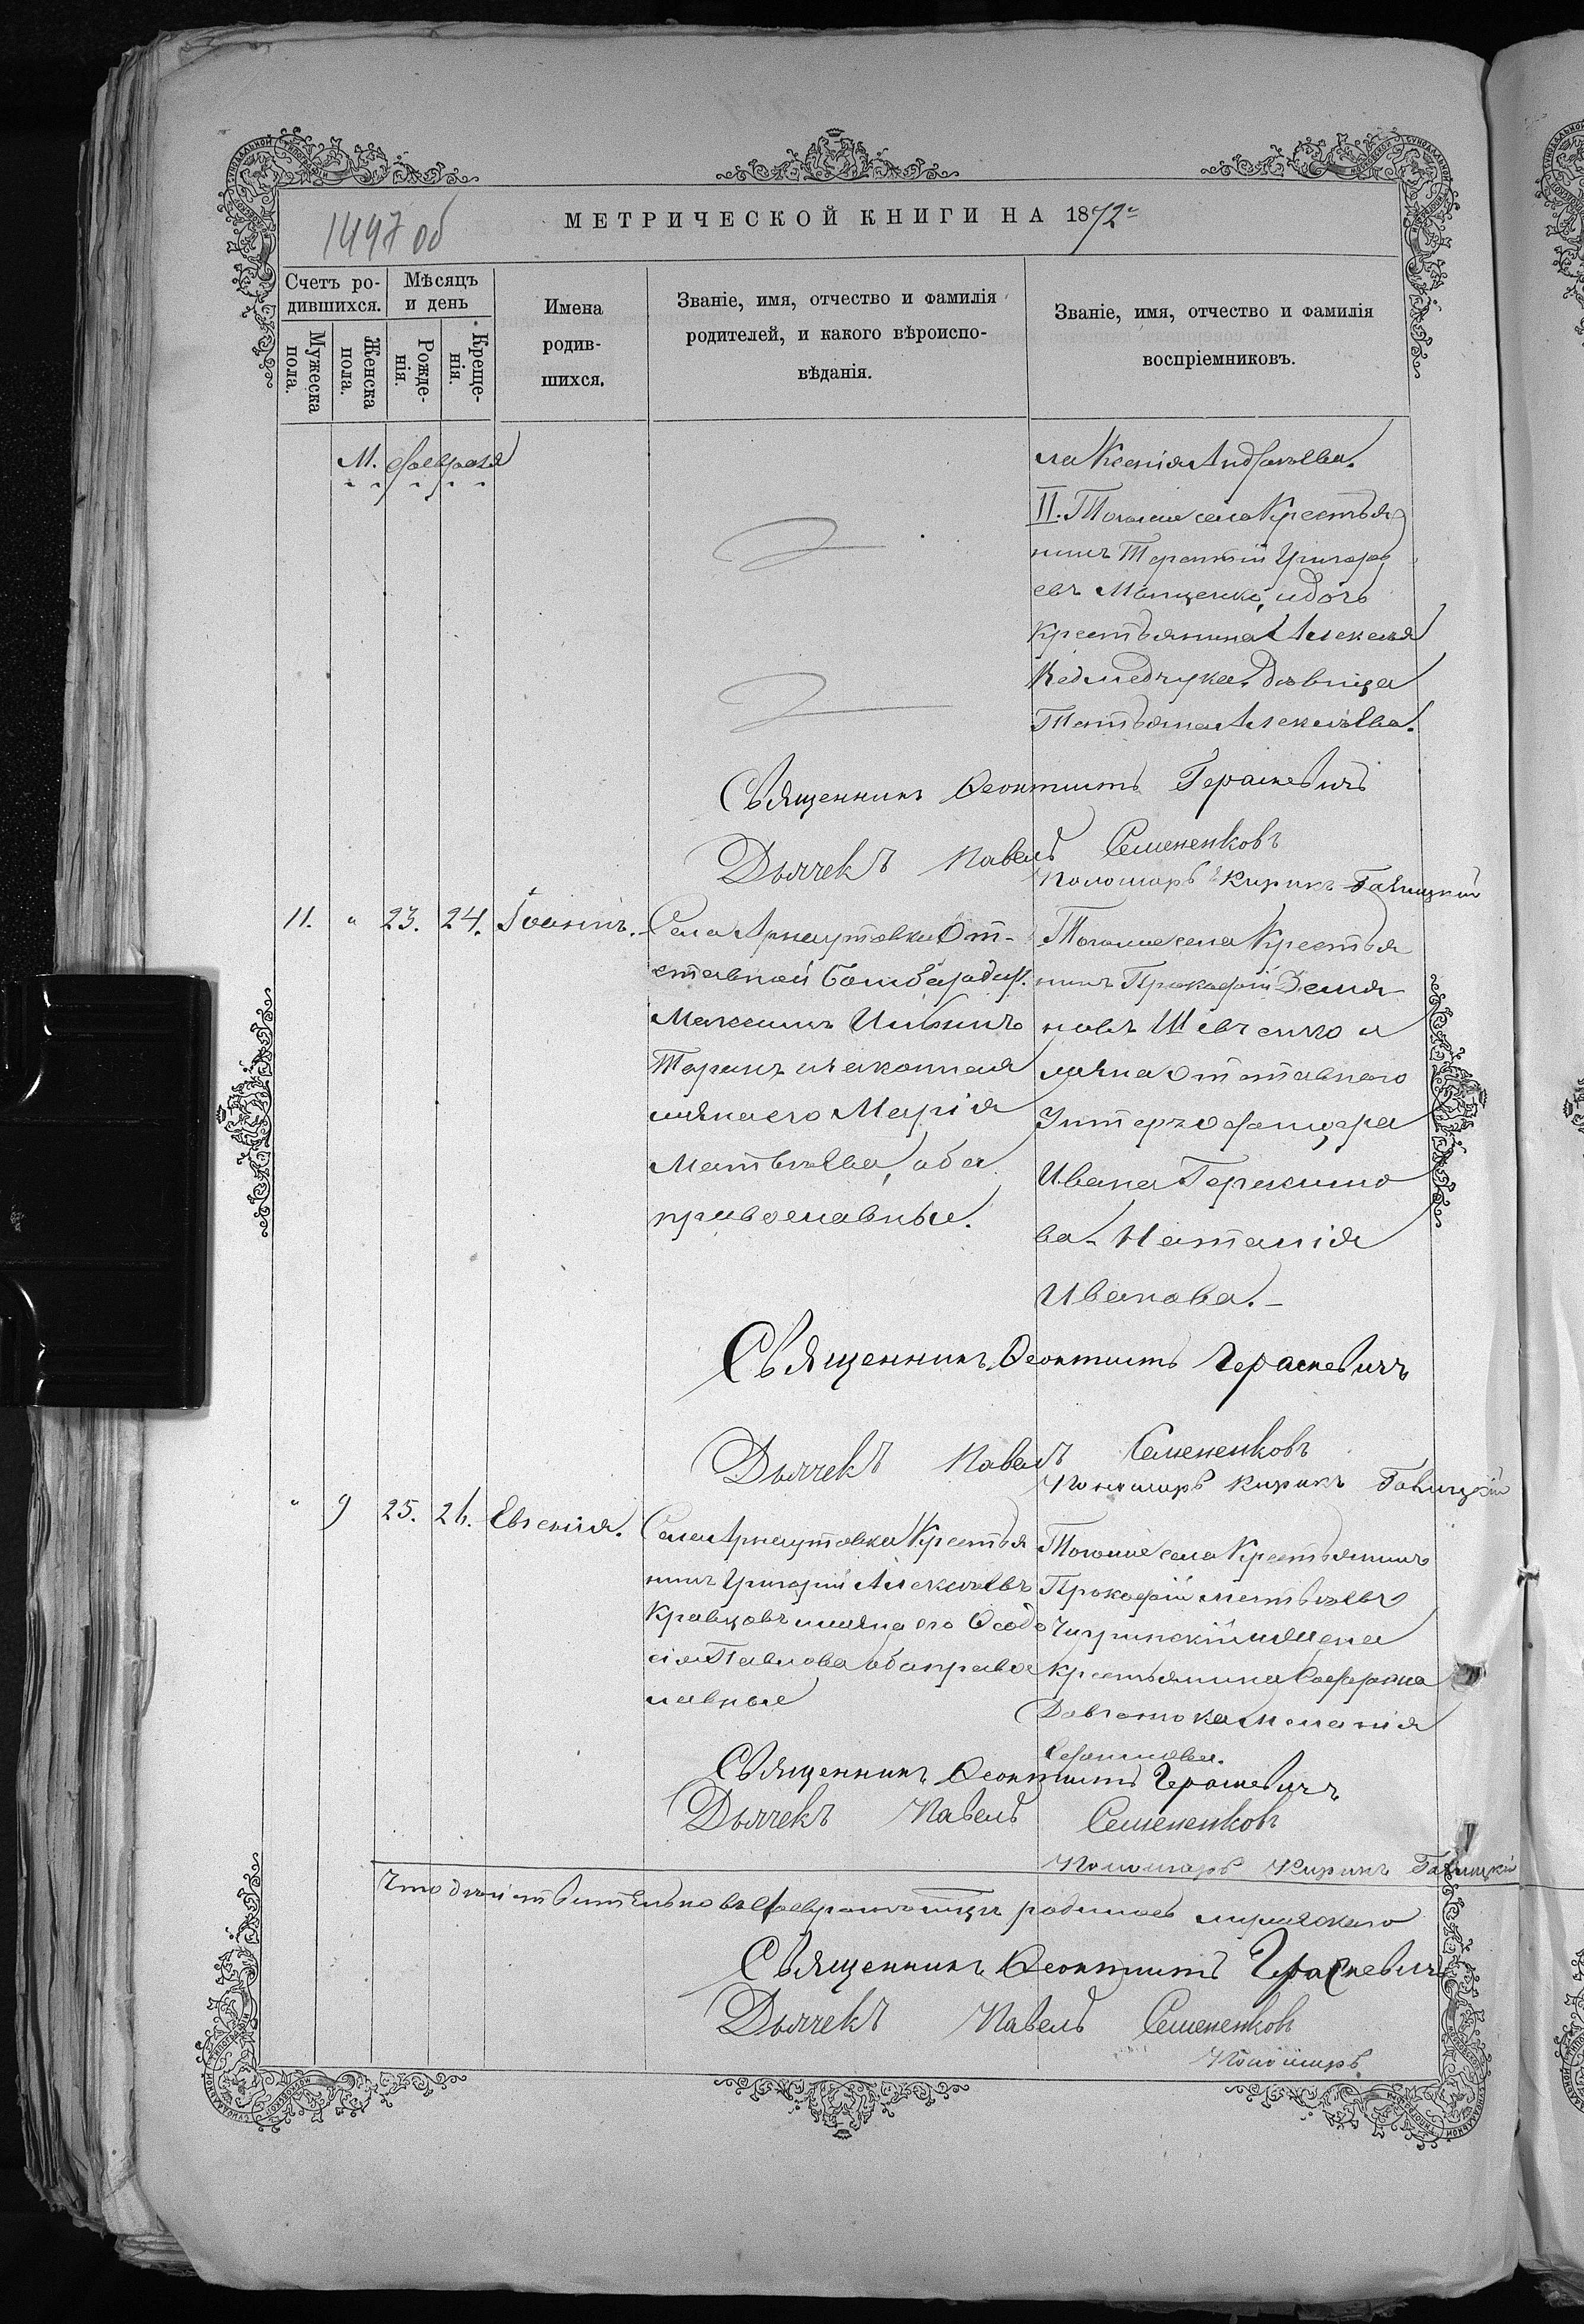 1497 об
МЕТРИЧЕСКОЙ КНИГИ НА 1872
Счетъ ро-
дившихся.
Мужеска
пола.
Женска
пола.
Мѣсяцъ
и день
Рожде-
нія.
Креще-
нія.
Имена
родив-
шихся.
Званіе, имя, отчество и фамилія
родителей, и какого вѣроиспо-
вѣданія.
Званіе, имя, отчество и фамилія
воспріемниковъ.
М. Февраля
ла Ксенія Андреева.
II. Тогоже села Крестья
нинъ Терентій Григорь
евъ Мащенко, и дочь
Крестьянина Алексея
Ведмедчука, дѣвица
Татьяна Алексѣева.
Священникъ Ѳеоктистъ Гераскевичъ
Дьячекъ Павелъ Семененковъ
Пономарь Кирикъ Галицкій
11. " 23. 24. Іоаннъ.
Села Арнаутовки От-
ставной Бомбардир.
Максимъ
Таранъ и законная
жена его Марія
Матвѣева, оба
православные.
Тогоже села Крестья
нинъ Прокофій Демья
новъ Шевченко и
жена отставного
Унтеръ офицера
Ивана Герасимо
ва Наталія
Иванова.
Священникъ Ѳеоктистъ Гераскевичъ
Дьячекъ Павелъ Семененковъ
Пономарь Кирикъ Галицкій
" 9 25. 26. Евгенія.
Села Арнаутовки Крестья
нинъ Григорій Алексѣевъ
Кравцовъ и жена его Ѳеодо
сія Павлова оба правос
лавные
Тогоже села Крестьянинъ
Прокофій Матвѣевъ
Чигринскій и жена
крестьянина Софрона
Меланія
Ефимова.
Священникъ Ѳеоктистъ Гераскевичъ
Дьячекъ Павелъ Семененковъ
Пономарь Кирикъ Галицкій
Что дѣйствительно въ Февралѣ мцѣ родилось мужескаго
Священникъ Ѳеоктистъ Гераскевичъ
Дьячекъ Павелъ Семененковъ
Пономарь